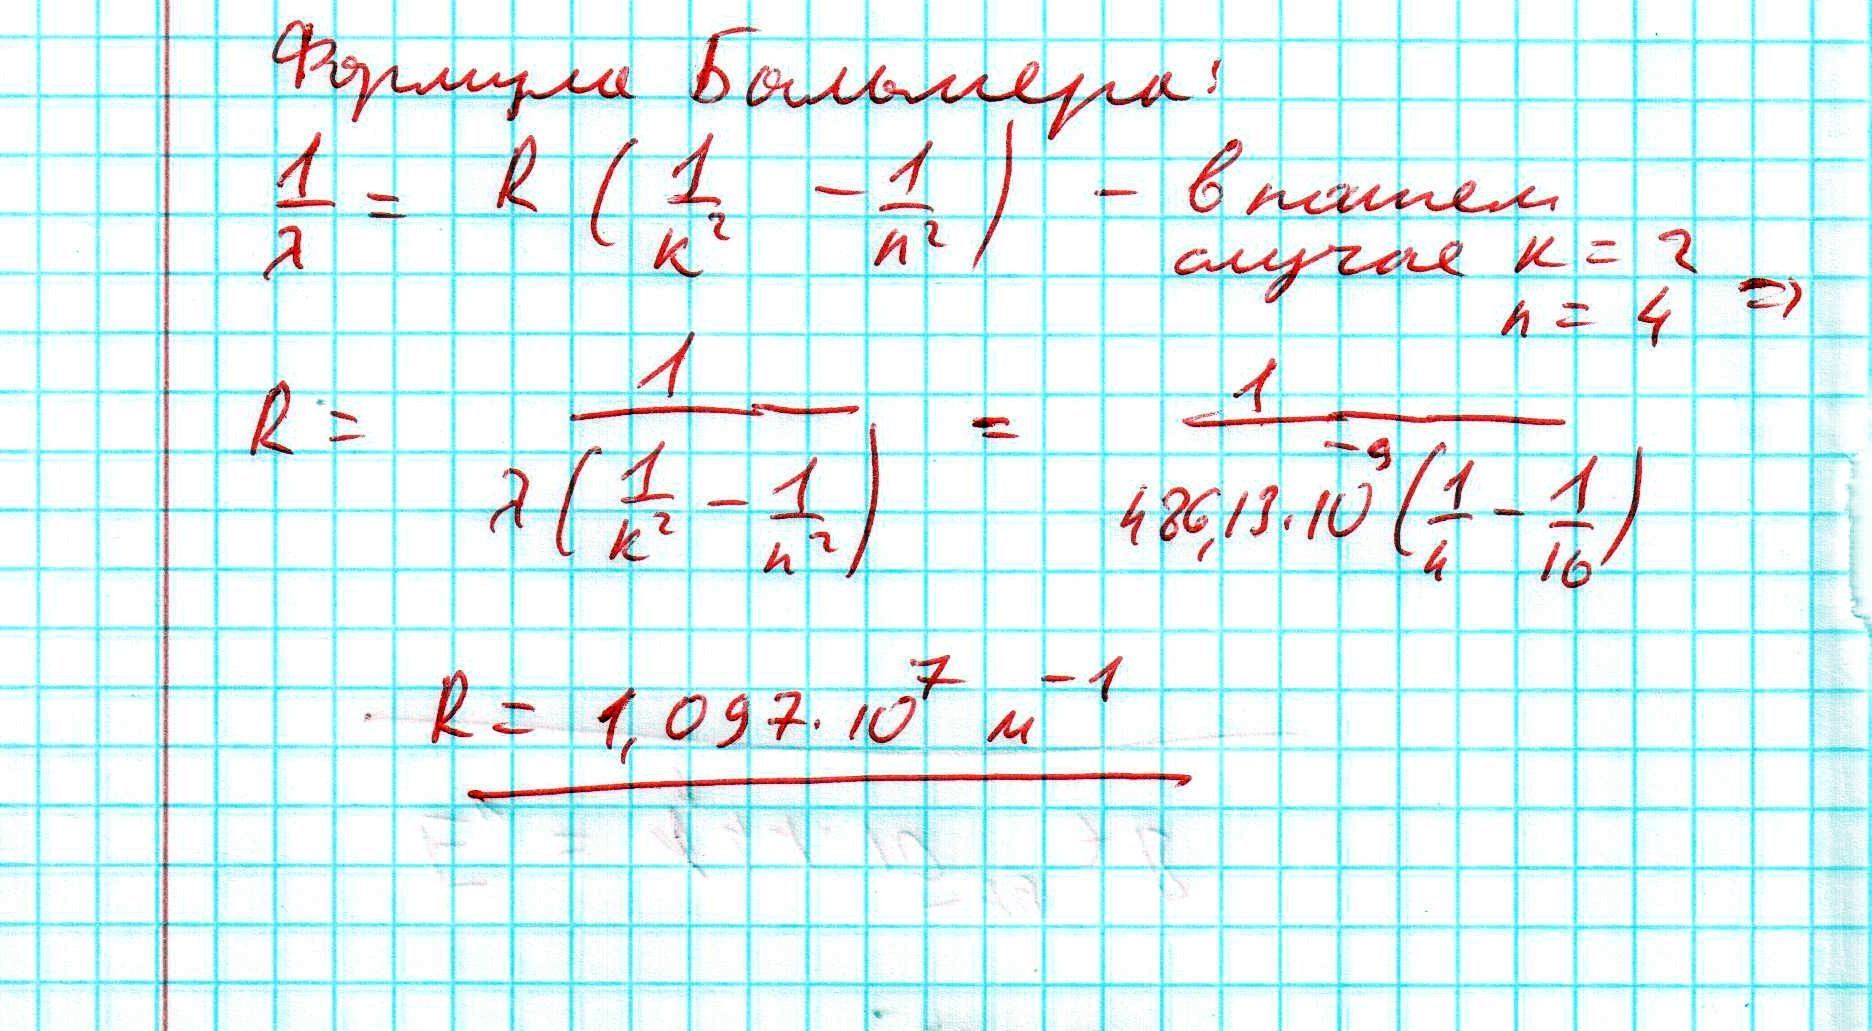 Формула Бальмера:
1/λ = R (1/k² - 1/n²) - в нашем
случае k = 2
n = 4 =>
R = 1/(λ(1/k² - 1/n²)) = 1/(486,13·10⁻⁹(1/4 - 1/16))
R = 1,097·10⁷ м⁻¹